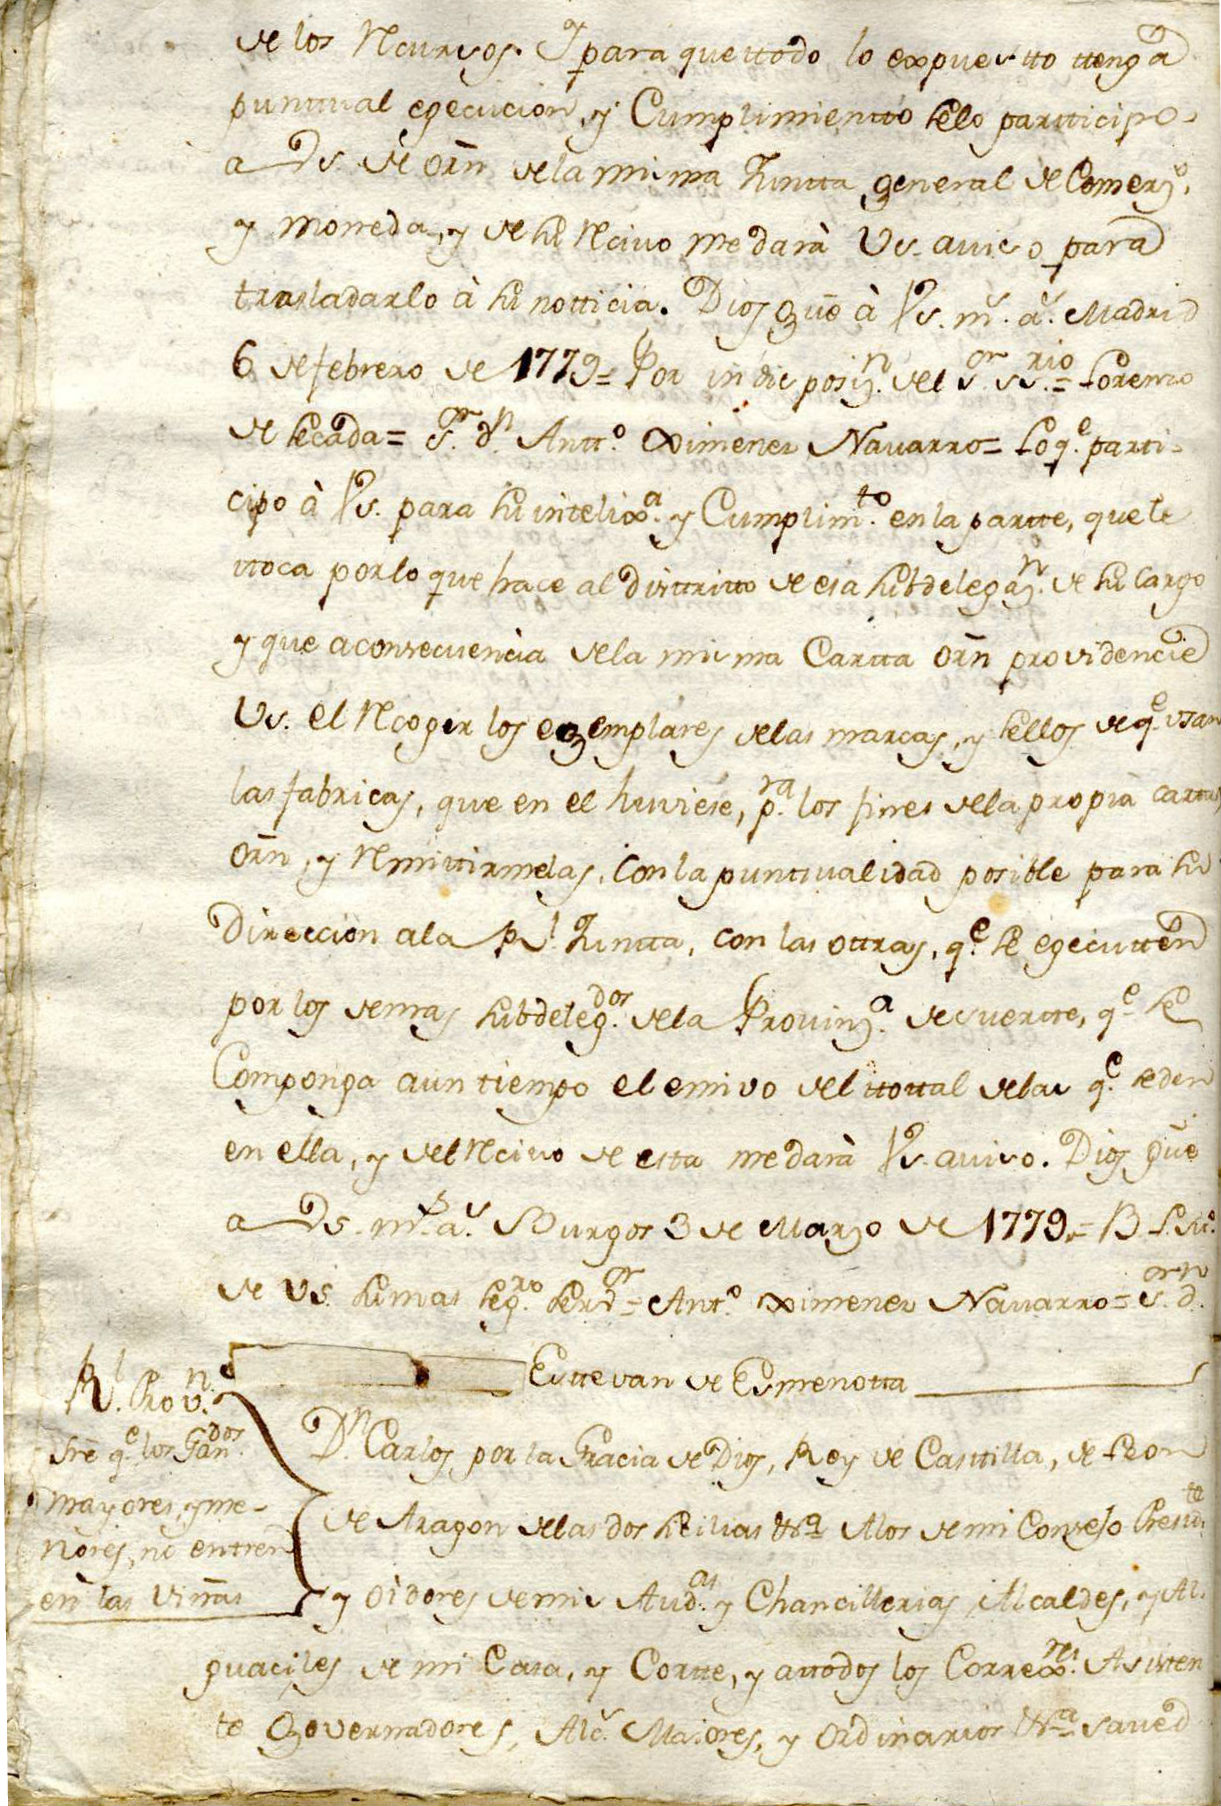 de los Recursos. Y para que ttodo lo expuestto ttenga
punttual egecucion, y Cumplimientto selo partticipo
a Vs. de orñ dela misma Juntta general de Comerzº.
y moneda, y de su Recivo me darà Vs. aviso para
trasladarlo à su notticia. Dios güe à Vs. mˢ. aˢ. Madrid
6 de febrero de 1779= Por indisposizⁿ. del Sʳ. ssʳⁱᵒ.= Lorenzo
de secada= Sʳ. dⁿ. Anttº. Ximenez Navarro= Lo qᵉ. parti-
cipo à Vs. para su intelixª. y Cumplimᵗᵒ. en la partte, que le
ttoca por lo que hace al Disttritto de esa subdelegazⁿ. de su Cargo
y que a consecuencia dela misma Cartta orñ providencie
Vs. el Recoger los egemplares delas marcas, y sellos de qᵉ. usan
las fabricas, que en el huviese, pʳᵃ. los fines dela propia cartta
orñ, y Remittirmelas, con la punttualidad posible para su
Direccion a la Rˡ. Juntta, con las ottras, qᵉ. se egecutten
por los demas subdelegᵈᵒˢ. dela Provinzª. de suertte, qᵉ. se
Componga a un tiempo el emivo del ttottal delas qᵉ. se den
en ella, y del Recivo de esta me darà Vs. aviso. Dios güe
a Vs. mˢ. aˢ. Burgos 3 de Marzo de 1779.= B. L. Mº.
de Vs. su mas segʳᵒ. serᵒʳ= Antº. Ximenez Navarro= Sᵒʳ. dⁿ.
Esttevan de Esmenotta
Rˡ. Provⁿ.
sre qᵉ. los Ganᵈᵒˢ.
mayores, y me-
nores, no entren
en las viñas
Dⁿ. Carlos por la Gracia de Dios, Rey de Casttilla, de Leon
de Aragon delas dos sicilias &ª A los de mi Consejo Presidᵗᵉ.
y oidores de mis Audªˢ. y Chancillerias, Alcaldes, y Al-
guaciles de mi Casa, y Cortte, y a ttodos los Correxʳᵉˢ. Asisten
te Governadores, Alcˢ. Maiores, y ordinarios &ª saved